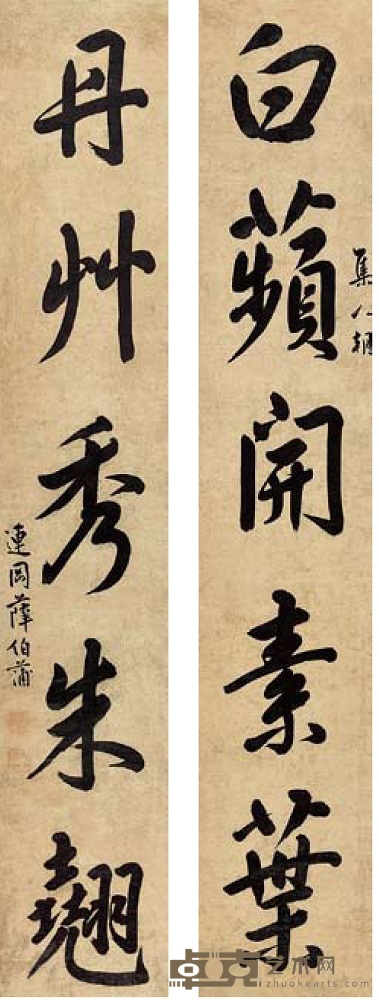 白蘋開素葉
集八朝
丹艸秀朱翹
連岡薛伯蒲
卓克艺术网
zhuokearts.com